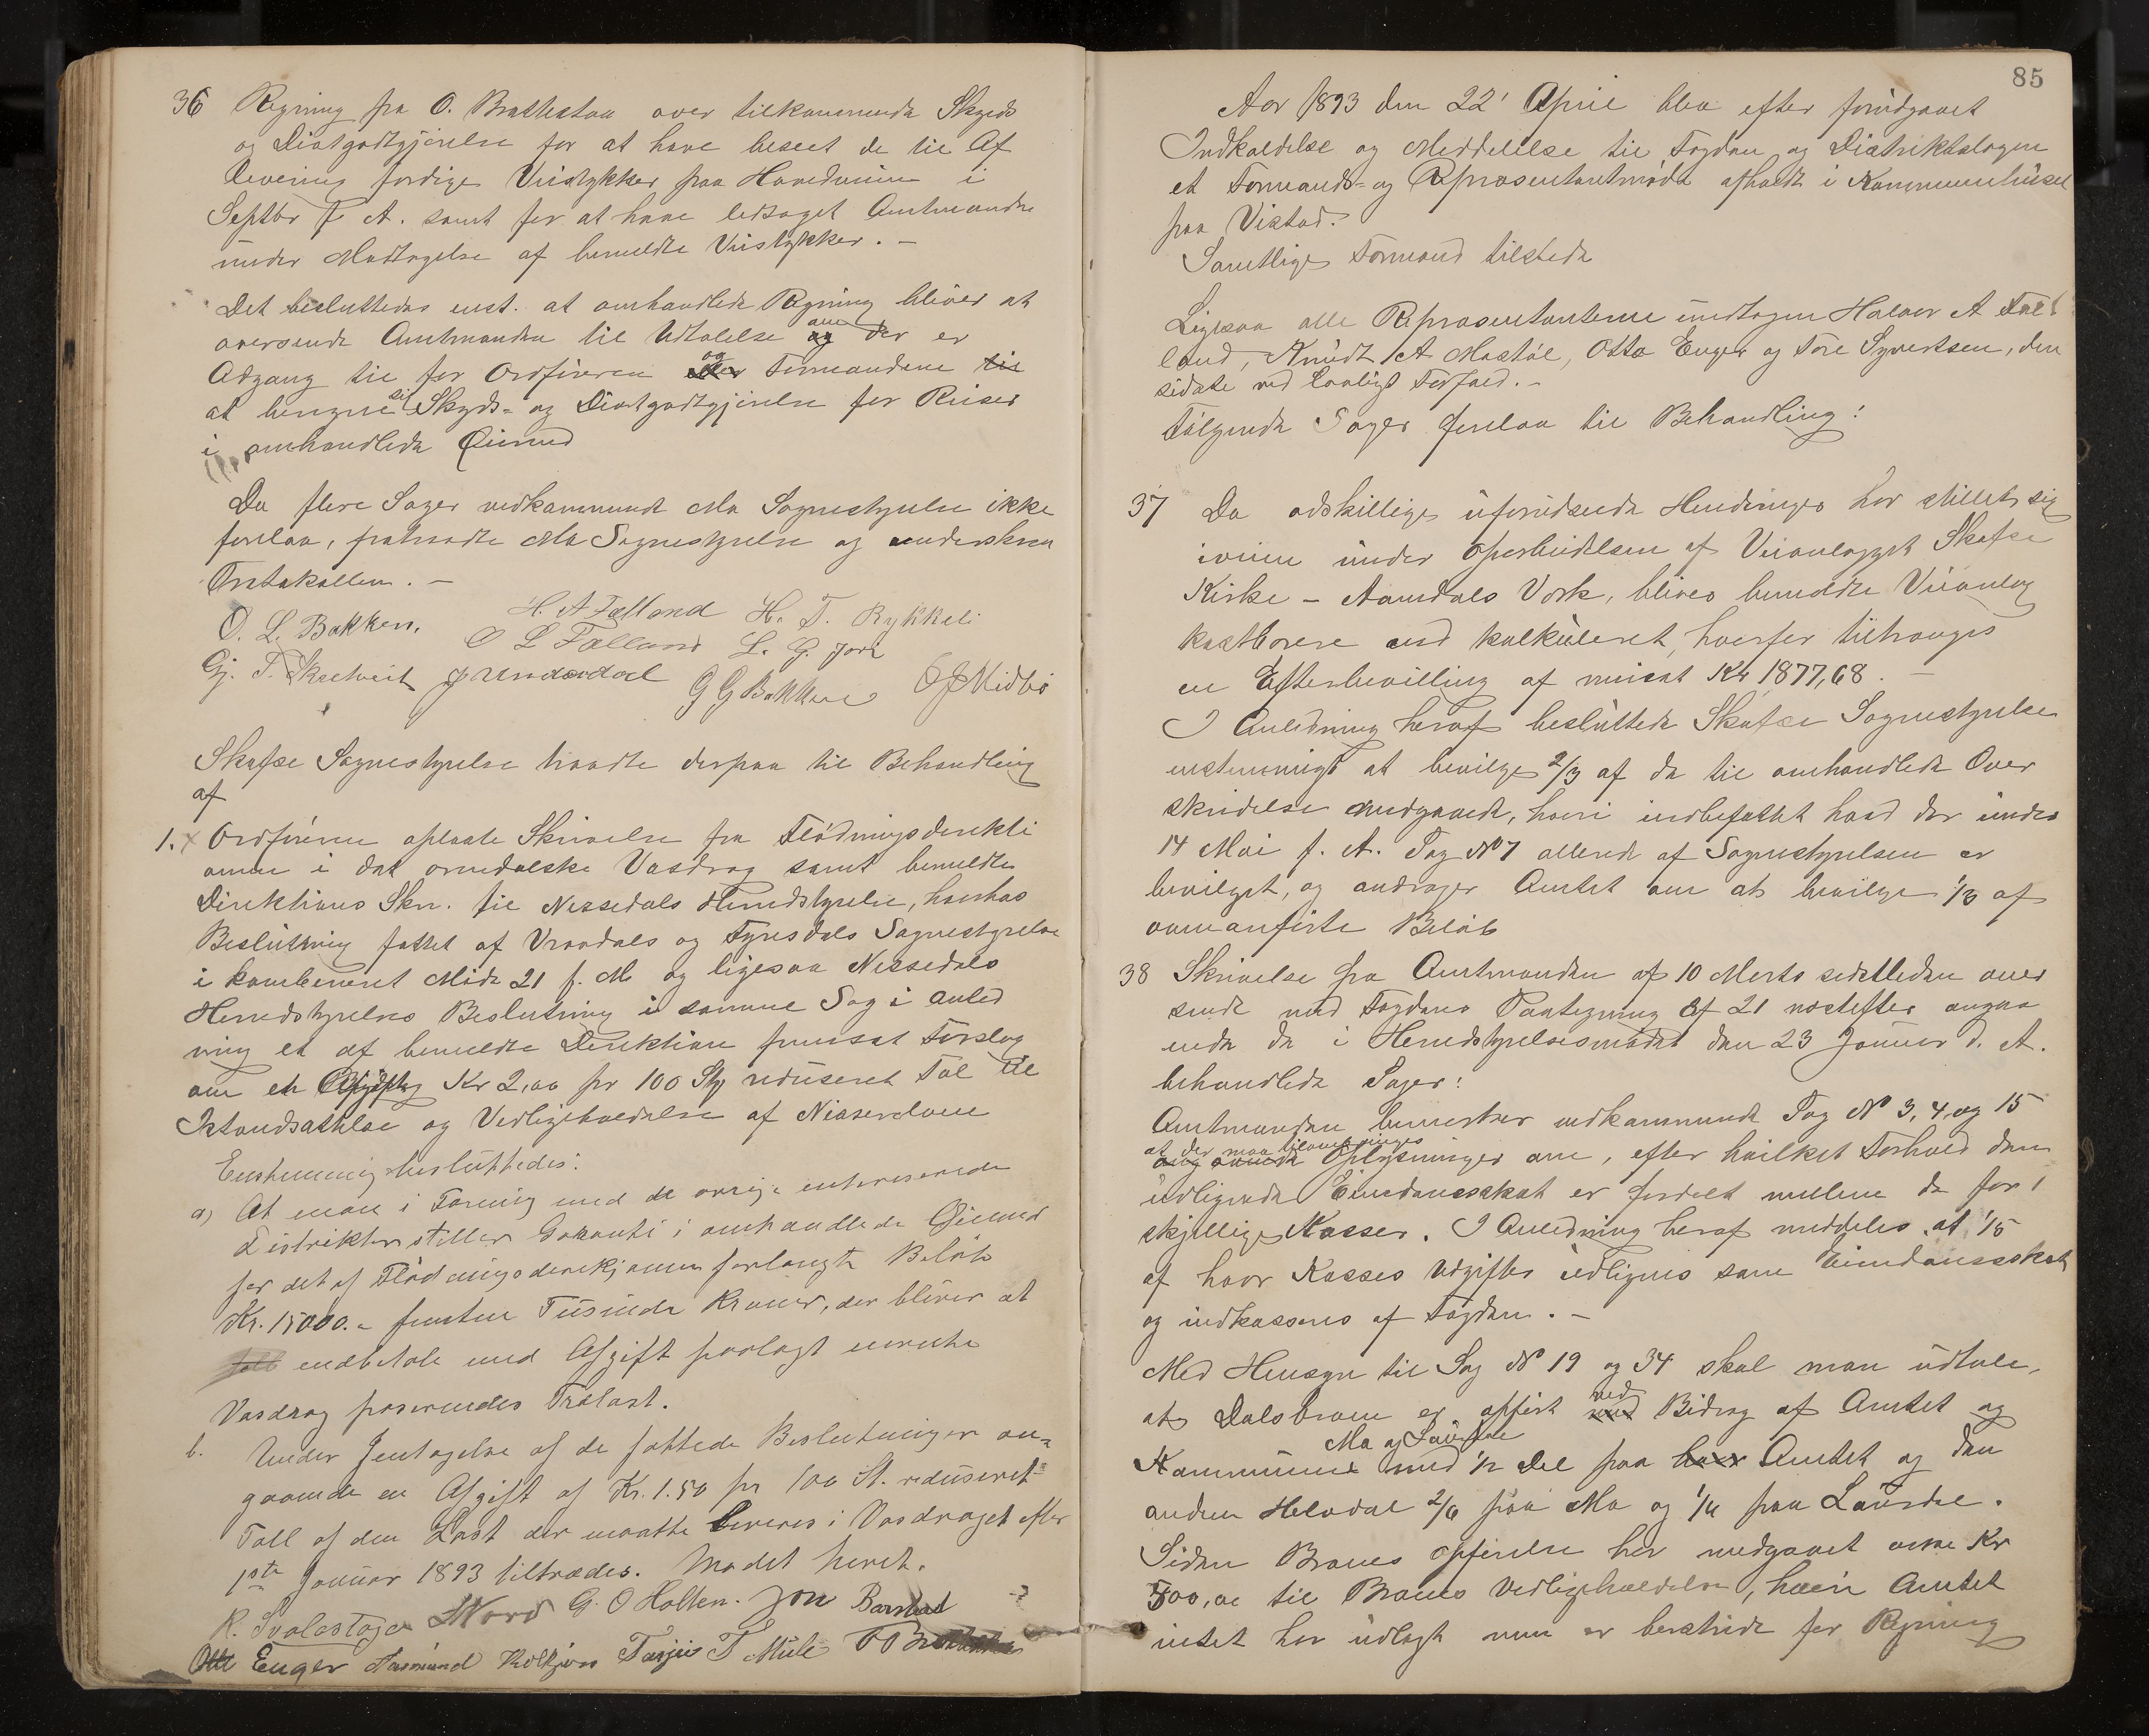 36 Regning fra O. Brattestaa over tilkommende Skyds
og Diætgodtgjørelse for at have beseet de til Af
levering færdige Veistykker paa Hovedveien i
Septbr f. A. samt for at have ledsaget Amtmanden
under Modtagelse af bemeldte Veistykker. —
Det besluttedes enst. at omhandlede Regning bliver at
oversende Amtmanden til Udtalelse om der er
Adgang til for Ordføreren og Formændene
at beregne sig Skyds- og Diætgodtgjørelse for Reiser
i omhandlede Øiemed
Da flere Sager vedkommende Mo Sognestyrelse ikke
forelaa, fratraadte Mo Sognestyrelse og underskrev
Protokollen. —
O. L. Bakken. H. A Falland H. T. Rykkeli
O L Falland L. G. Jore
Gj. T. Skretveit J Undardal G G Bakken O J Midbö
Skafse Sognestyrelse traadte derpaa til Behandling
af
1. x Ordføreren oplæste Skrivelse fra Flødningsdirekti
onen i det arendalske Vasdrag samt bemeldte
Direktions Skr. til Nissedals Herredstyrelse, hvorhos
Beslutning fattet af Vraadals og Tyrisdals Sognestyrelse
i kombineret Møde 21 f. M og ligesaa Nissedals
Herredstyrelses Beslutning i samme Sag i Anled
ning et af bemeldte Direktion fremsat Forslag
om en Afgift Kr 2,00 pr 100 Stk reduseret Tal til
Istandsættelse og Vedligeholdelse af Nisserdam
Enstemmig besluttedes:
a) At man i Forening med de øvrige interesserede
Distrikter stiller Garanti i omhandlede Øiemed
for det af Flødningsdirekjonen forlangte Beløb
Kr. 15000.- femten Tusinde Kroner, der bliver at
indbetale med Afgift paalagt
Vasdrag passerendes Trælast.
b. Under Jentagelse af de fattede Beslutninger an-
gaaende en Afgift af Kr. 1.50 pr 100 St. reduseret-
Tall af den Last der maatte leveres i Vasdraget efter
1ste Januar 1893 tiltrædes. Mødet hævet.
K. Svalestoga SNord G. O Holten. Jon Barstad
Otte Enger Aasmund Kolkjøn Tarjei T Mule
85
Aar 1893 den 22' April blev efter forudgaaet
Indkaldelse og Meddelelse til Fogden og Distriktslægen
et Formands- og Repræsentantmøde afholdt i Kommunehuset
paa Vistad.
Samtlige Formænd tilstede
Ligesaa alle Repræsentanterne undtagen Halvor A Fal
land, Knudt A Mostøl, Otto Enger og Tore Syvertsen, den
sidste ved lovligt Forfald. —
Følgende Sager forelaa til Behandling:
37 Da adskillige uforudseede Hendinger har stillet sig
iveien under Oparbeidelsen af Veianlægget Skafse
Kirke – Aamdals Værk, blives bemeldte Veianlæg
kostbarere end kalkuleret, hvorfor tiltrænges
en Efterbevilling af mindst Kr 1877,68. —
I Anledning heraf besluttede Skafse Sognestyrelse
enstemmigt at bevilge 2/3 af de til omhandlede Over
skridelse medgaaede, hvori indbefattet hvad der under
14 Mai f. A. Sag No 7 allerede af Sognestyrelsen er
bevilget, og andrager Amtet om at bevilge 1/3 af
ovenanførte Beløb
38 Skrivelse fra Amtmanden af 10 Marts sidstleden over
sendt med Fogdens Paategning af 21 næstefter angaa
ende de i Herredstyrelsesmødet den 23 Januar d. A.
behandlede Sager:
Amtmanden bemerker vedkommende Sag No 3, 4 og 15
at der maa tilveiebringes
Oplysninger om, efter hvilket Forhold den
udlignede Eiendomsskat er fordelt mellem de for
skjellige Kasser. I Anledning heraf meddeles, at 1/5
af hver Kasses Udgifter udlignes som Eiendomsskat
og indkasseres af Fogden. —
Med Hensyn til Sag No 19 og 34 skal man udtale,
at Dalsbroen er opført ved Bidrag af Amtet og
Mo og Laurdal
Kommunene med 1/2 Del paa Amtet og den
anden Halvdel 2/6 paa Mo og 1/6 paa Laurdal.
Siden Broens Opførelse har medgaaet over Kr
500,00 til Broens Vedligeholdelse, hvori Amtet
intet har udlagt men er bestridt for Regning